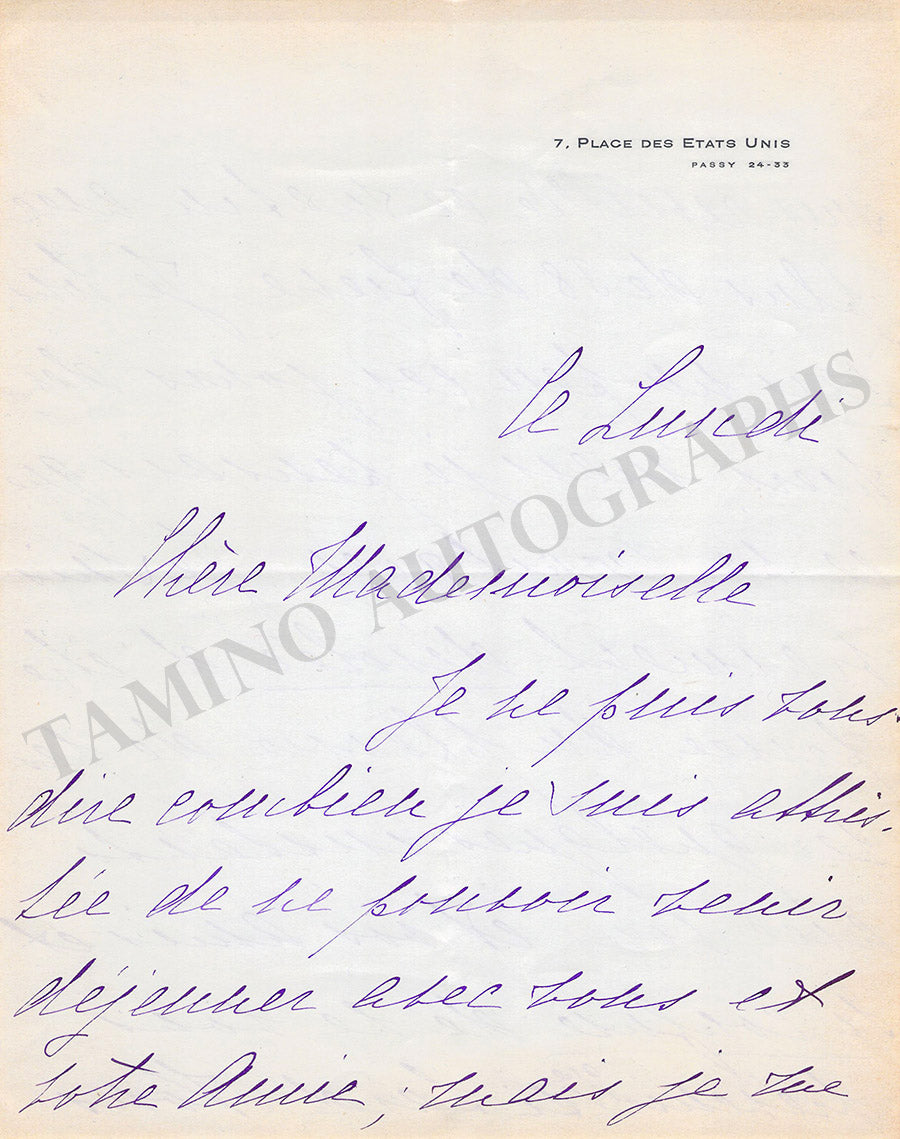 7, PLACE DES ETATS UNIS
PASSY 24-33
le Lundi
TAMINO AUTOGRAPHS
Chère Mademoiselle
Je ne puis vous
dire combien je suis attris-
tée de ne pouvoir venir
déjeuner avec vous et
votre Amie ; mais je me